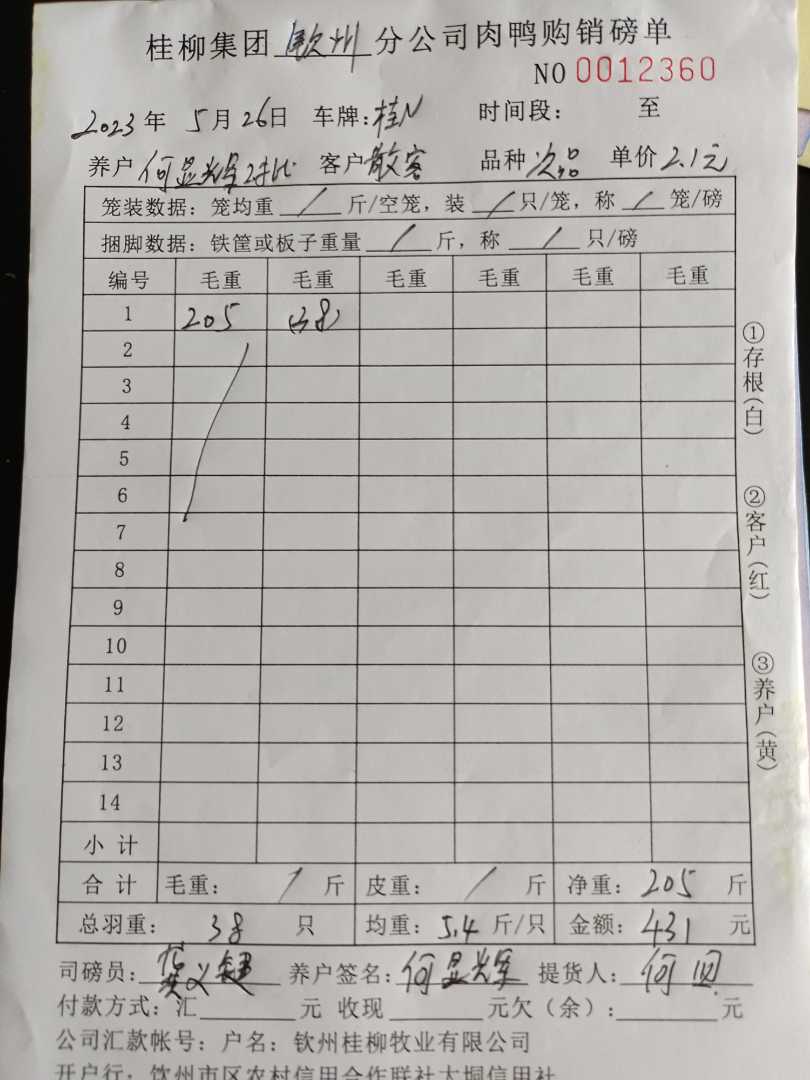 桂柳集团 钦州 分公司肉鸭购销磅单
NO 0012360
2023 年 5 月 26 日 车牌：桂N 时间段： 至
养户 何显辉对比 客户 散客 品种 次品 单价 2.1元
笼装数据：笼均重 / 斤/空笼，装 / 只/笼，称 / 笼/磅
捆脚数据：铁筐或板子重量 / 斤，称 / 只/磅
编号 毛重 毛重 毛重 毛重 毛重 毛重
1 205 (38)
2
3
4
5
6
7
8
9
10
11
12
13
14
小计
合计 毛重： / 斤 皮重： / 斤 净重： 205 斤
总羽重： 38 只 均重：5.4 斤/只 金额：431 元
司磅员： 养户签名：何显辉 提货人：何
付款方式：汇 元 收现 元欠（余）： 元
公司汇款帐号：户名：钦州桂柳牧业有限公司
开户行：钦州市区农村信用合作联社大垌信用社
①存根（白）
②客户（红）
③养户（黄）